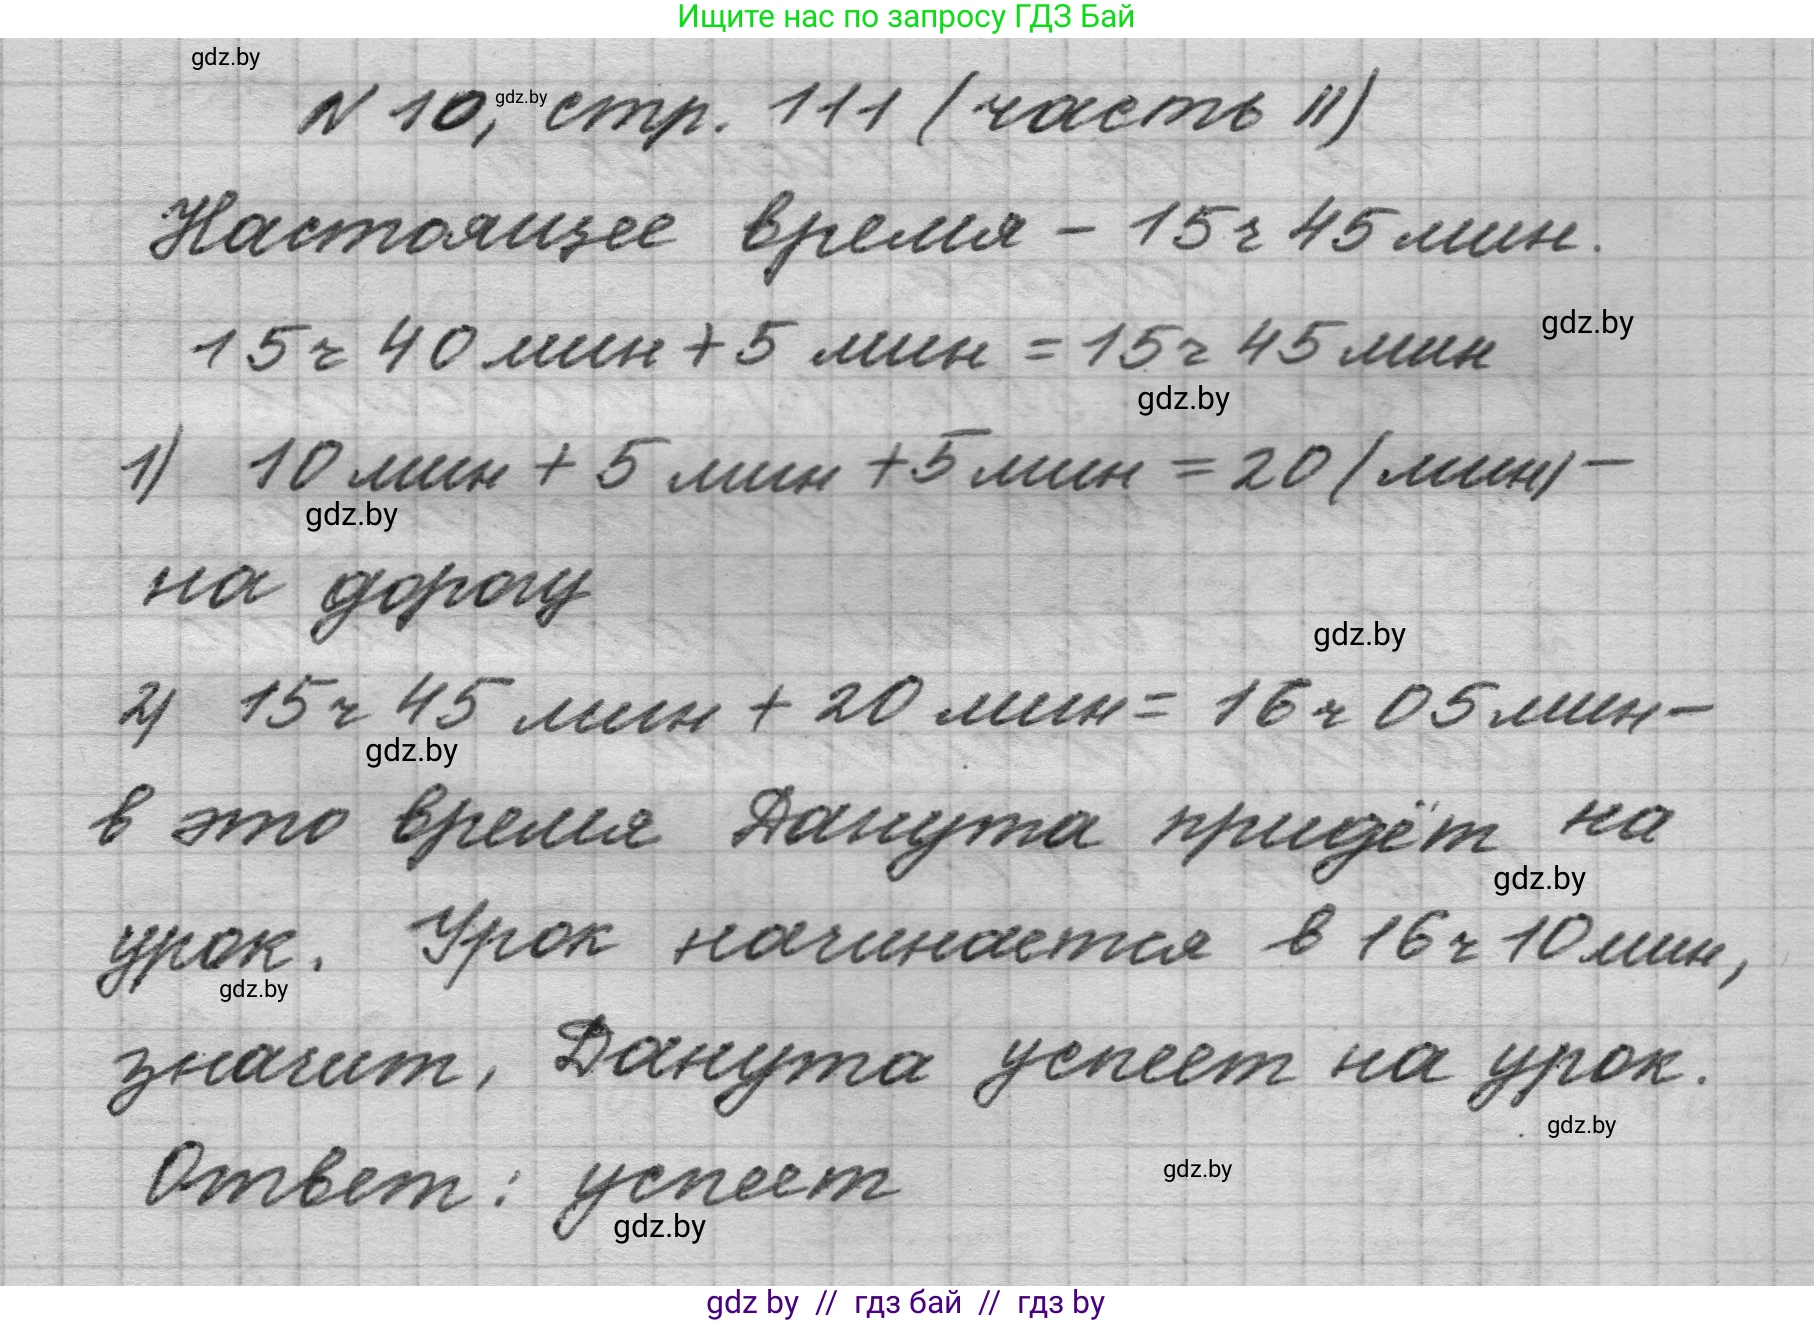 Ищите нас по запросу ГДЗ Бай
gdz.by
N 10, стр. 111 (часть II)
gdz.by
Настоящее время - 15ч 45 мин.
15ч 40 мин + 5 мин = 15ч 45 мин
gdz.by
gdz.by
1) 10 мин + 5 мин + 5 мин = 20 (мин) -
gdz.by
на дорогу
gdz.by
2) 15ч 45 мин + 20 мин = 16ч 05 мин -
gdz.by
в это время Данута придёт на
gdz.by
урок. Урок начинается в 16ч 10 мин,
gdz.by
значит, Данута успеет на урок.
gdz.by
Ответ: успеет
gdz.by
gdz.by
gdz by // гдз бай // гдз by